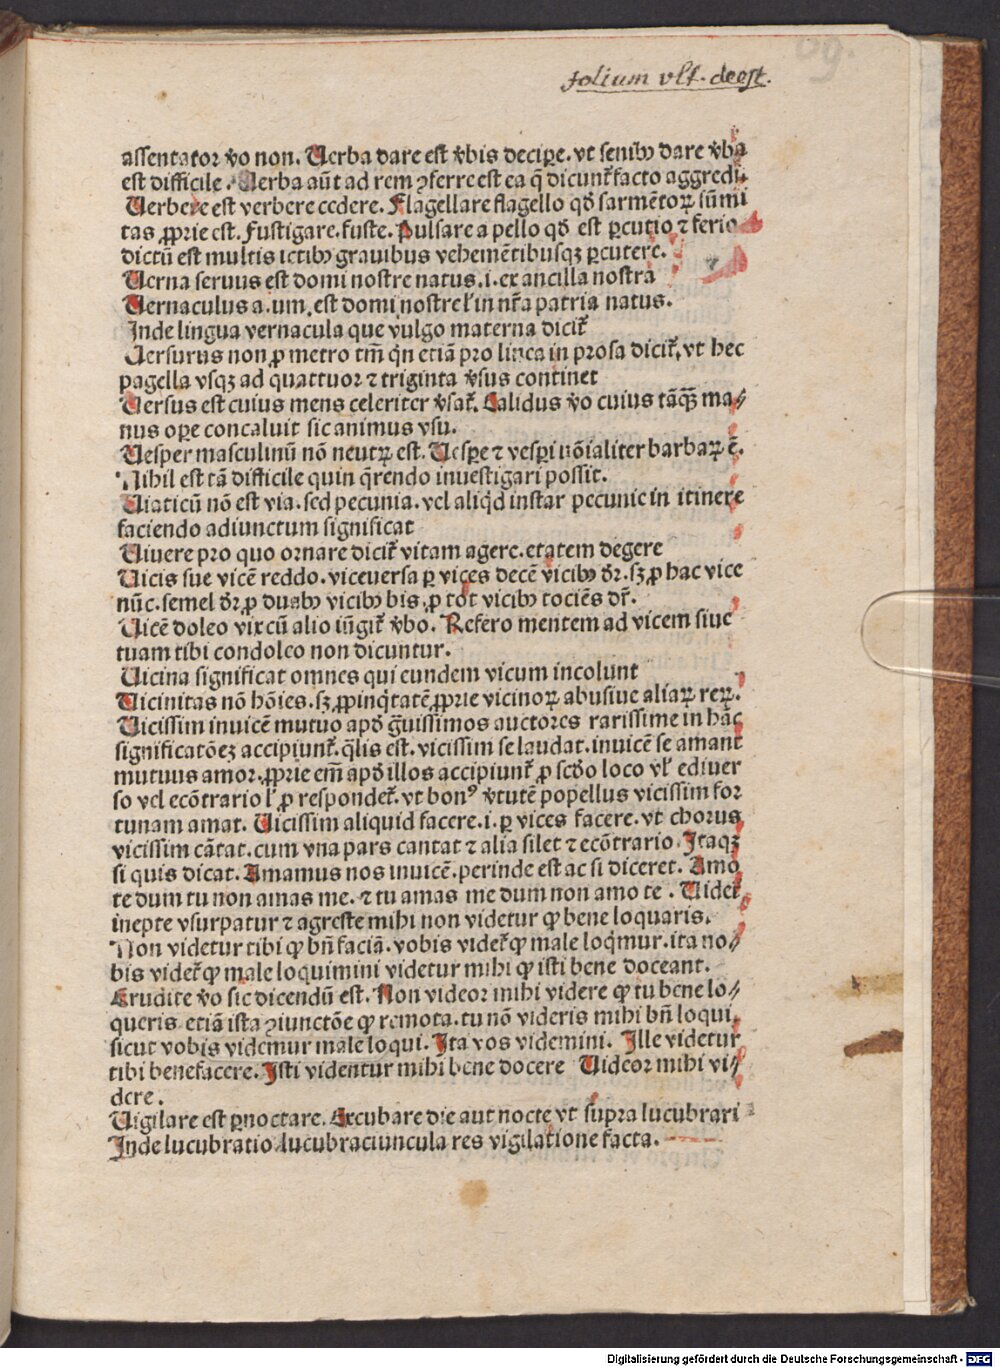 folium vlt. deest.
assentator v̄o non. Uerba dare est v̄bis decipe. vt senibꝫ dare v̄ba
est difficile. Uerba aūt ad rem ꝯferre est ea q̄ dicunt᷑ facto aggredi.
Uerbere est verbere cedere. Flagellare flagello qd̓ sarmētoꝝ sūmi
tas ꝓprie est. Fustigare. fuste. Pulsare a pello qd̓ est ꝑcutio ⁊ ferio
dictū est multis ictibꝫ grauibus vehemētibusqꝫ ꝑcutere.
Uerna seruus est domi nostre natus. i. ex ancilla nostra
Uernaculus a. um. est domi nostre l̓ in nr̄a patria natus.
Inde lingua vernacula que vulgo materna dicit᷑
Uersurus non ꝓ metro tm̄ qn̄ etiā pro linea in prosa dicit᷑, vt hec
pagella vsqꝫ ad quattuor ⁊ triginta v̄sus continet
Uersus est cuius mens celeriter v̄sat᷑. Calidus v̄o cuius tāqꝫ̄ ma⸗
nus oꝑe concaluit sic animus vsu.
Uesper masculinū nō neutꝝ est. Uesꝑe ⁊ vesꝑi nōialiter barbaꝝ ē.
Nihil est tā difficile quin q̄rendo inuestigari possit.
Uiaticū nō est via. sed pecunia. vel aliqd̓ instar pecunie in itinere
faciendo adiunctum significat
Uiuere pro quo ornare dicit᷑ vitam agere. etatem degere
Uicis sue vicē reddo. viceuersa ꝑ vices decē vicibꝫ dr̄. sꝫ ꝓ hac vice
nūc. semel dr̄. ꝓ duabꝫ vicibꝫ bis, ꝓ tot vicibꝫ tociēs dr̄.
Uicē doleo vix cū alio iūgit᷑ v̄bo. Refero mentem ad vicem siue
tuam tibi condoleo non dicuntur.
Uicina significat omnes qui eundem vicum incolunt
Uicinitas nō hōies. sꝫ ꝓpinq̄tatē ꝓprie vicinoꝝ abusiue aliaꝝ reꝝ.
Uicissim inuicē mutuo apd̓ gͣuissimos auctores rarissime in hāc
significatōeꝫ accipiunt᷑. q̄lis est. vicissim se laudat. inuicē se amant
mutuus amor. ꝓprie em̄ apd̓ illos accipiunt᷑ ꝓ scd̓o loco vl̓ ediuer
so vel ecōtrario l̓ ꝓ respondet᷑. vt bonꝰ v̄tutē popellus vicissim for
tunam amat. Uicissim aliquid facere. i. ꝑ vices facere. vt chorus
vicissim cātat. cum vna pars cantat ⁊ alia silet ⁊ ecōtrario. Itaqꝫ
si quis dicat. Amamus nos inuicē. perinde est ac si diceret. Amo
te dum tu non amas me. ⁊ tu amas me dum non amo te. Uidet᷑
inepte vsurpatur ⁊ agreste mihi non videtur ꝙ bene loquaris.
Non videtur tibi ꝙ bn̄ faciā. vobis videt᷑ ꝙ male loqͥmur. ita no⸗
bis videt᷑ ꝙ male loquimini videtur mihi ꝙ isti bene doceant.
Erudite v̄o sic dicendū est. Non videor mihi videre ꝙ tu bene lo⸗
queris etiā ista ꝯiunctōe ꝙ remota. tu nō videris mihi bn̄ loqui,
sicut vobis videmur male loqui. Ita vos videmini. Ille videtur
tibi benefacere. Isti videntur mihi bene docere Uideor mihi vi⸗
dere.
Uigilare est ꝑnoctare. Excubare die aut nocte vt supra lucubrari
Inde lucubratio. lucubraciuncula res vigilatione facta.
Digitalisierung gefördert durch die Deutsche Forschungsgemeinschaft - DFG